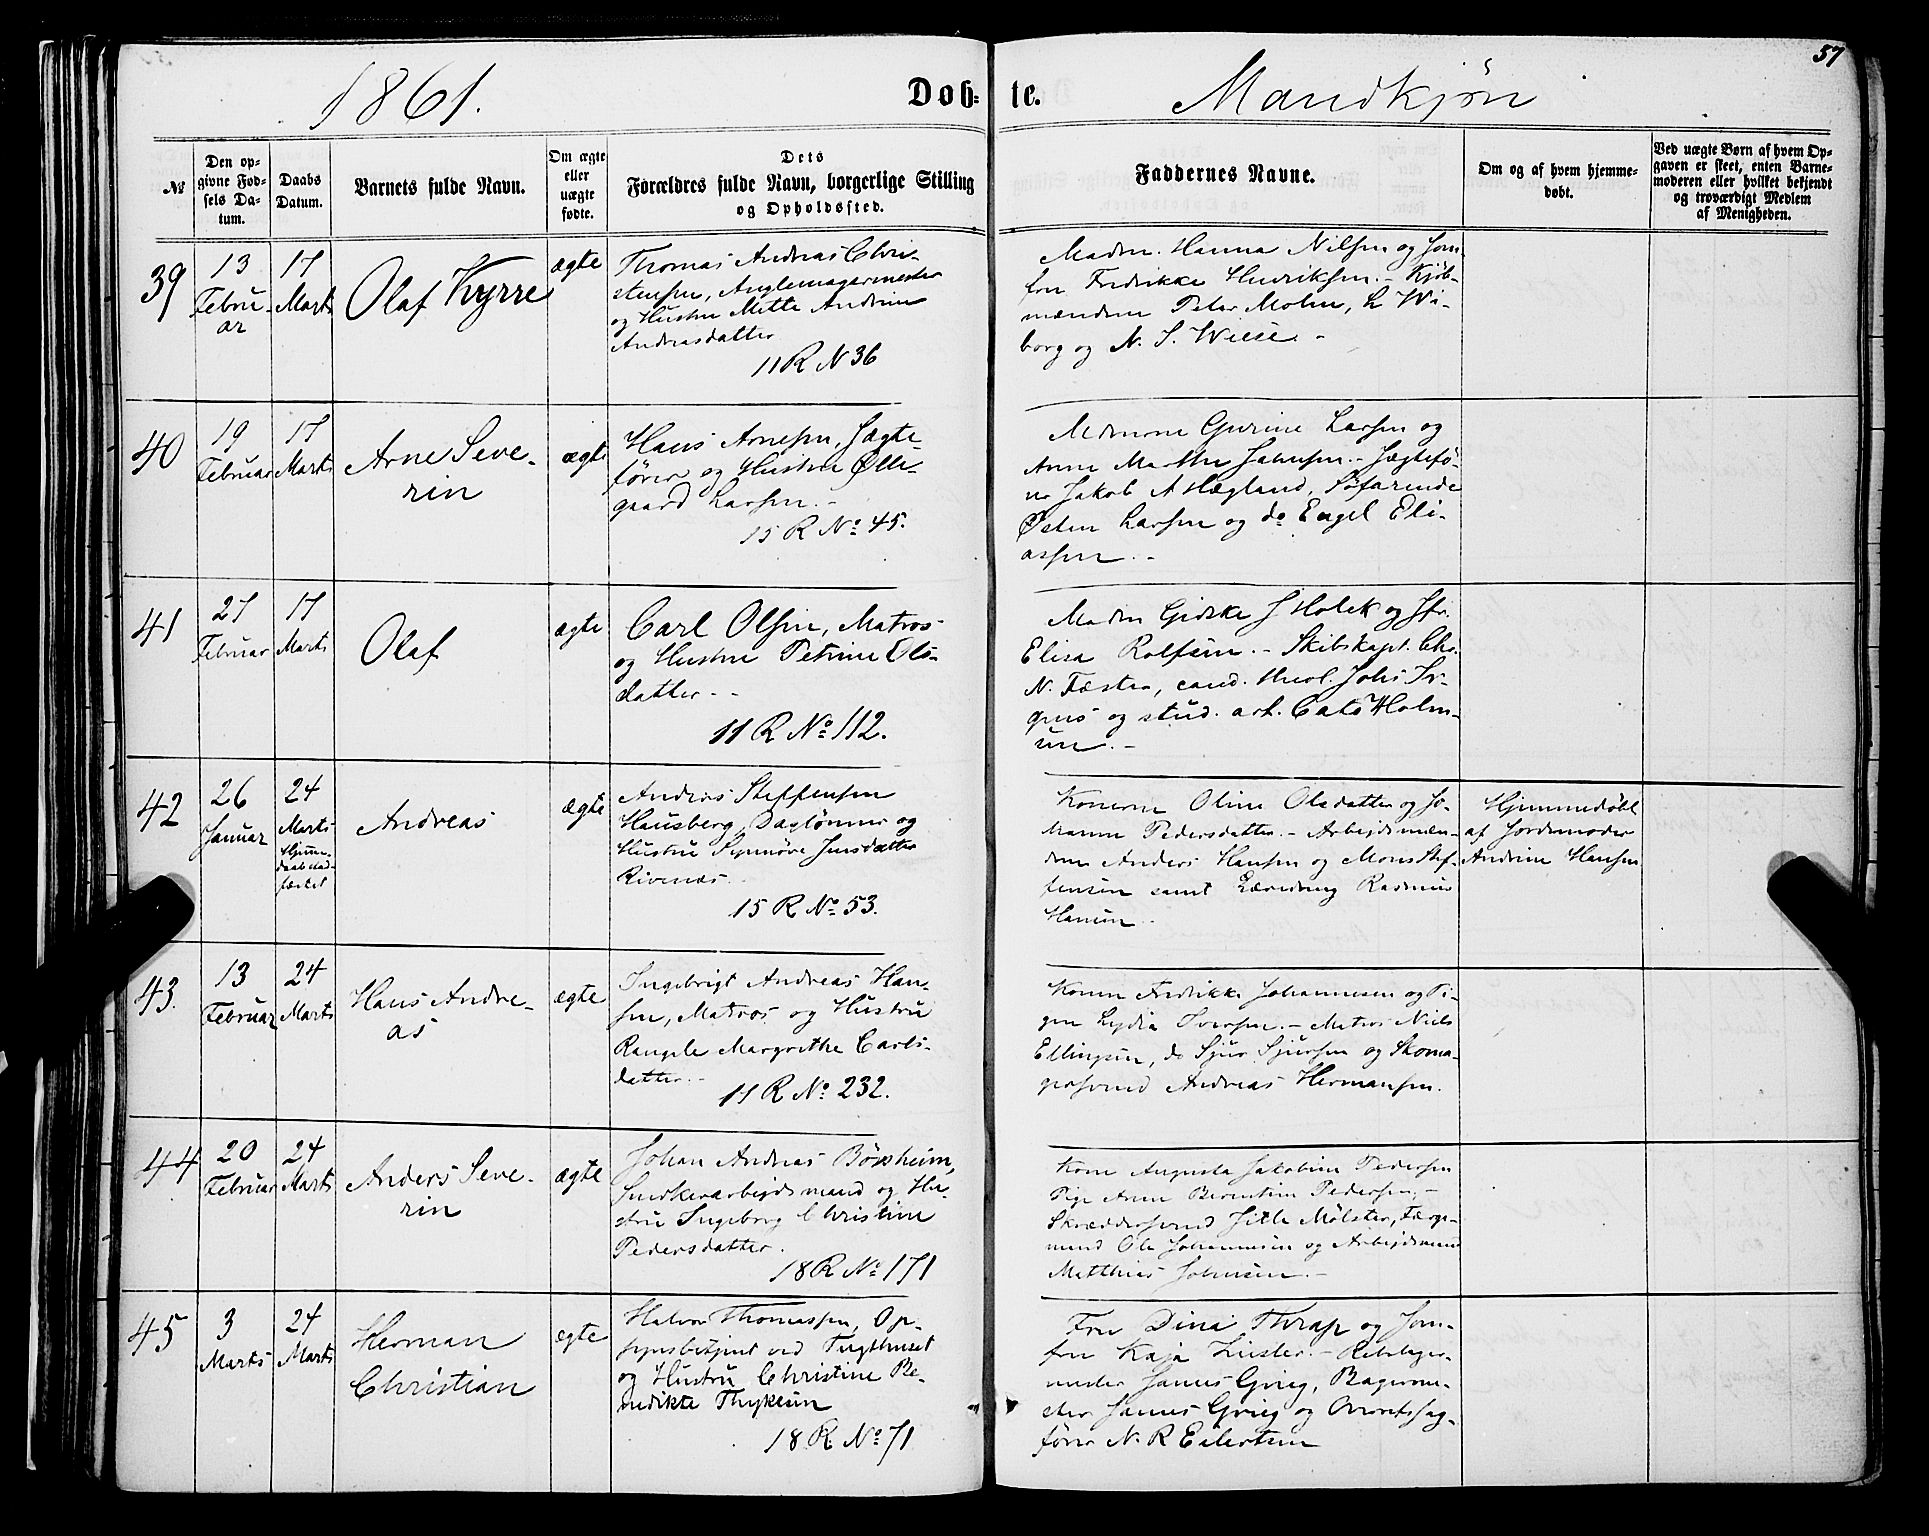 57
1861.
Døb= te.
Mandkjøn
№
Den op-
givne Fød-
sels Da-
tum.
Daabs
Datum.
Barnets fulde Navn.
Om ægte
eller
uægte
fødte.
Dets
Forældres fulde Navn, borgerlige Stilling
og Opholdssted.
Faddernes Navne.
Om og af hvem hjemme-
døbt.
Ved uægte Børn af hvem Op-
gaven er skeet, enten Barne-
moderen eller hvilket bekjendt
og troværdigt Medlem
af Menigheden.
39
13
Febru-
ar
17
Marts
Olaf Kyrre
ægte
Thomas Andreas Chri-
stensen,
og Hustru Mette Andrine
Andreasdatter
11 R N 36
Madm. Hanna Nilsen og Jom
fru Fredrikke Henriksen. - Kjøb-
mændene Peter Mohn, L Wi-
borg og N. S. Wiese. -
40
19
Februar
17
Marts
Arne Seve-
rin
ægte
Hans Arnesen, Jægte-
fører og Hustru Olle-
gaard Larsen. -
15 R No 45.
Madmerne Gurine Larsen og
Anne Marthe Johnsen. - Jægtefø-
rer Jakob A Hægland, Søfarende
Østen Larsen og do Engel Eli-
assen. -
41
27
Februar
17
Marts
Olaf
ægte
Carl Olsen, Matros
og Hustru Petrine Ols-
datter - -
11 R No 112.
Madm Gidske J Holek og Jfr.
Elisa Rolfsen. - Skibskapt. Chr.
N. Fæster, cand. theol. Johs
og stud. art. Cato Holm-
sen. -
42
26
Januar
24
Marts
Hjemme-
daab stad-
fæstet
Andreas
ægte
Andreas Steffensen
Hausberg, Daglønner og
Hustru Synnøve Jensdatter
Rivenæs.
15 R No 53.
Konerne Oline Olsdatter og Jo-
hanne Pedersdatter. - Arbejdsmæn-
dene Anders Hansen og Mons Stef-
fensen samt Lædreng Rasmus
Hansen -
Hjemmedøbt
af Jordemoder
Andrine Hansen
43.
13
Februar
24
Marts
Hans Andre-
as
ægte
Ingebrigt Andreas Han-
sen, Matros og Hustru
Rangele Margrethe Carls-
datter. -
11 R No 232.
Konen Fredrikke Johannesen og Pi-
gen Lydia Iversen. - Matros Niels
Ellingsen, do Sjur Sjursen og Skoma-
gersvend Andreas Hermansen.
44
20
Februar
24
Marts
Anders Seve-
rin
ægte
Johan Andreas Børsheim,
Snedkerarbejdsmand og Hu-
stru Ingeborg Christine
Pedersdatter.
18 R No 171
Kone Augusta Jakobine Pedersen
Pige Anne Berentine Pedersen, -
Skræddersvend Jitle Mølster, Færge-
mand Ole Johannesen og Arbejdsmand
Matthias Johnsen. -
45
3
Marts
24
Marts
Herman
Christian
ægte
Halvor Thomassen, Op-
synsbetjent ved Tugthuset
og Hustru Christine Be-
nedikte Thykesen
18 R. No 71
Fru Dina Thrap og Jom-
fru Kaja Linster. - Rebslager-
mester James Grieg, Bagerme-
ster James Grieg og Overretssag-
fører N. R Eilertsen